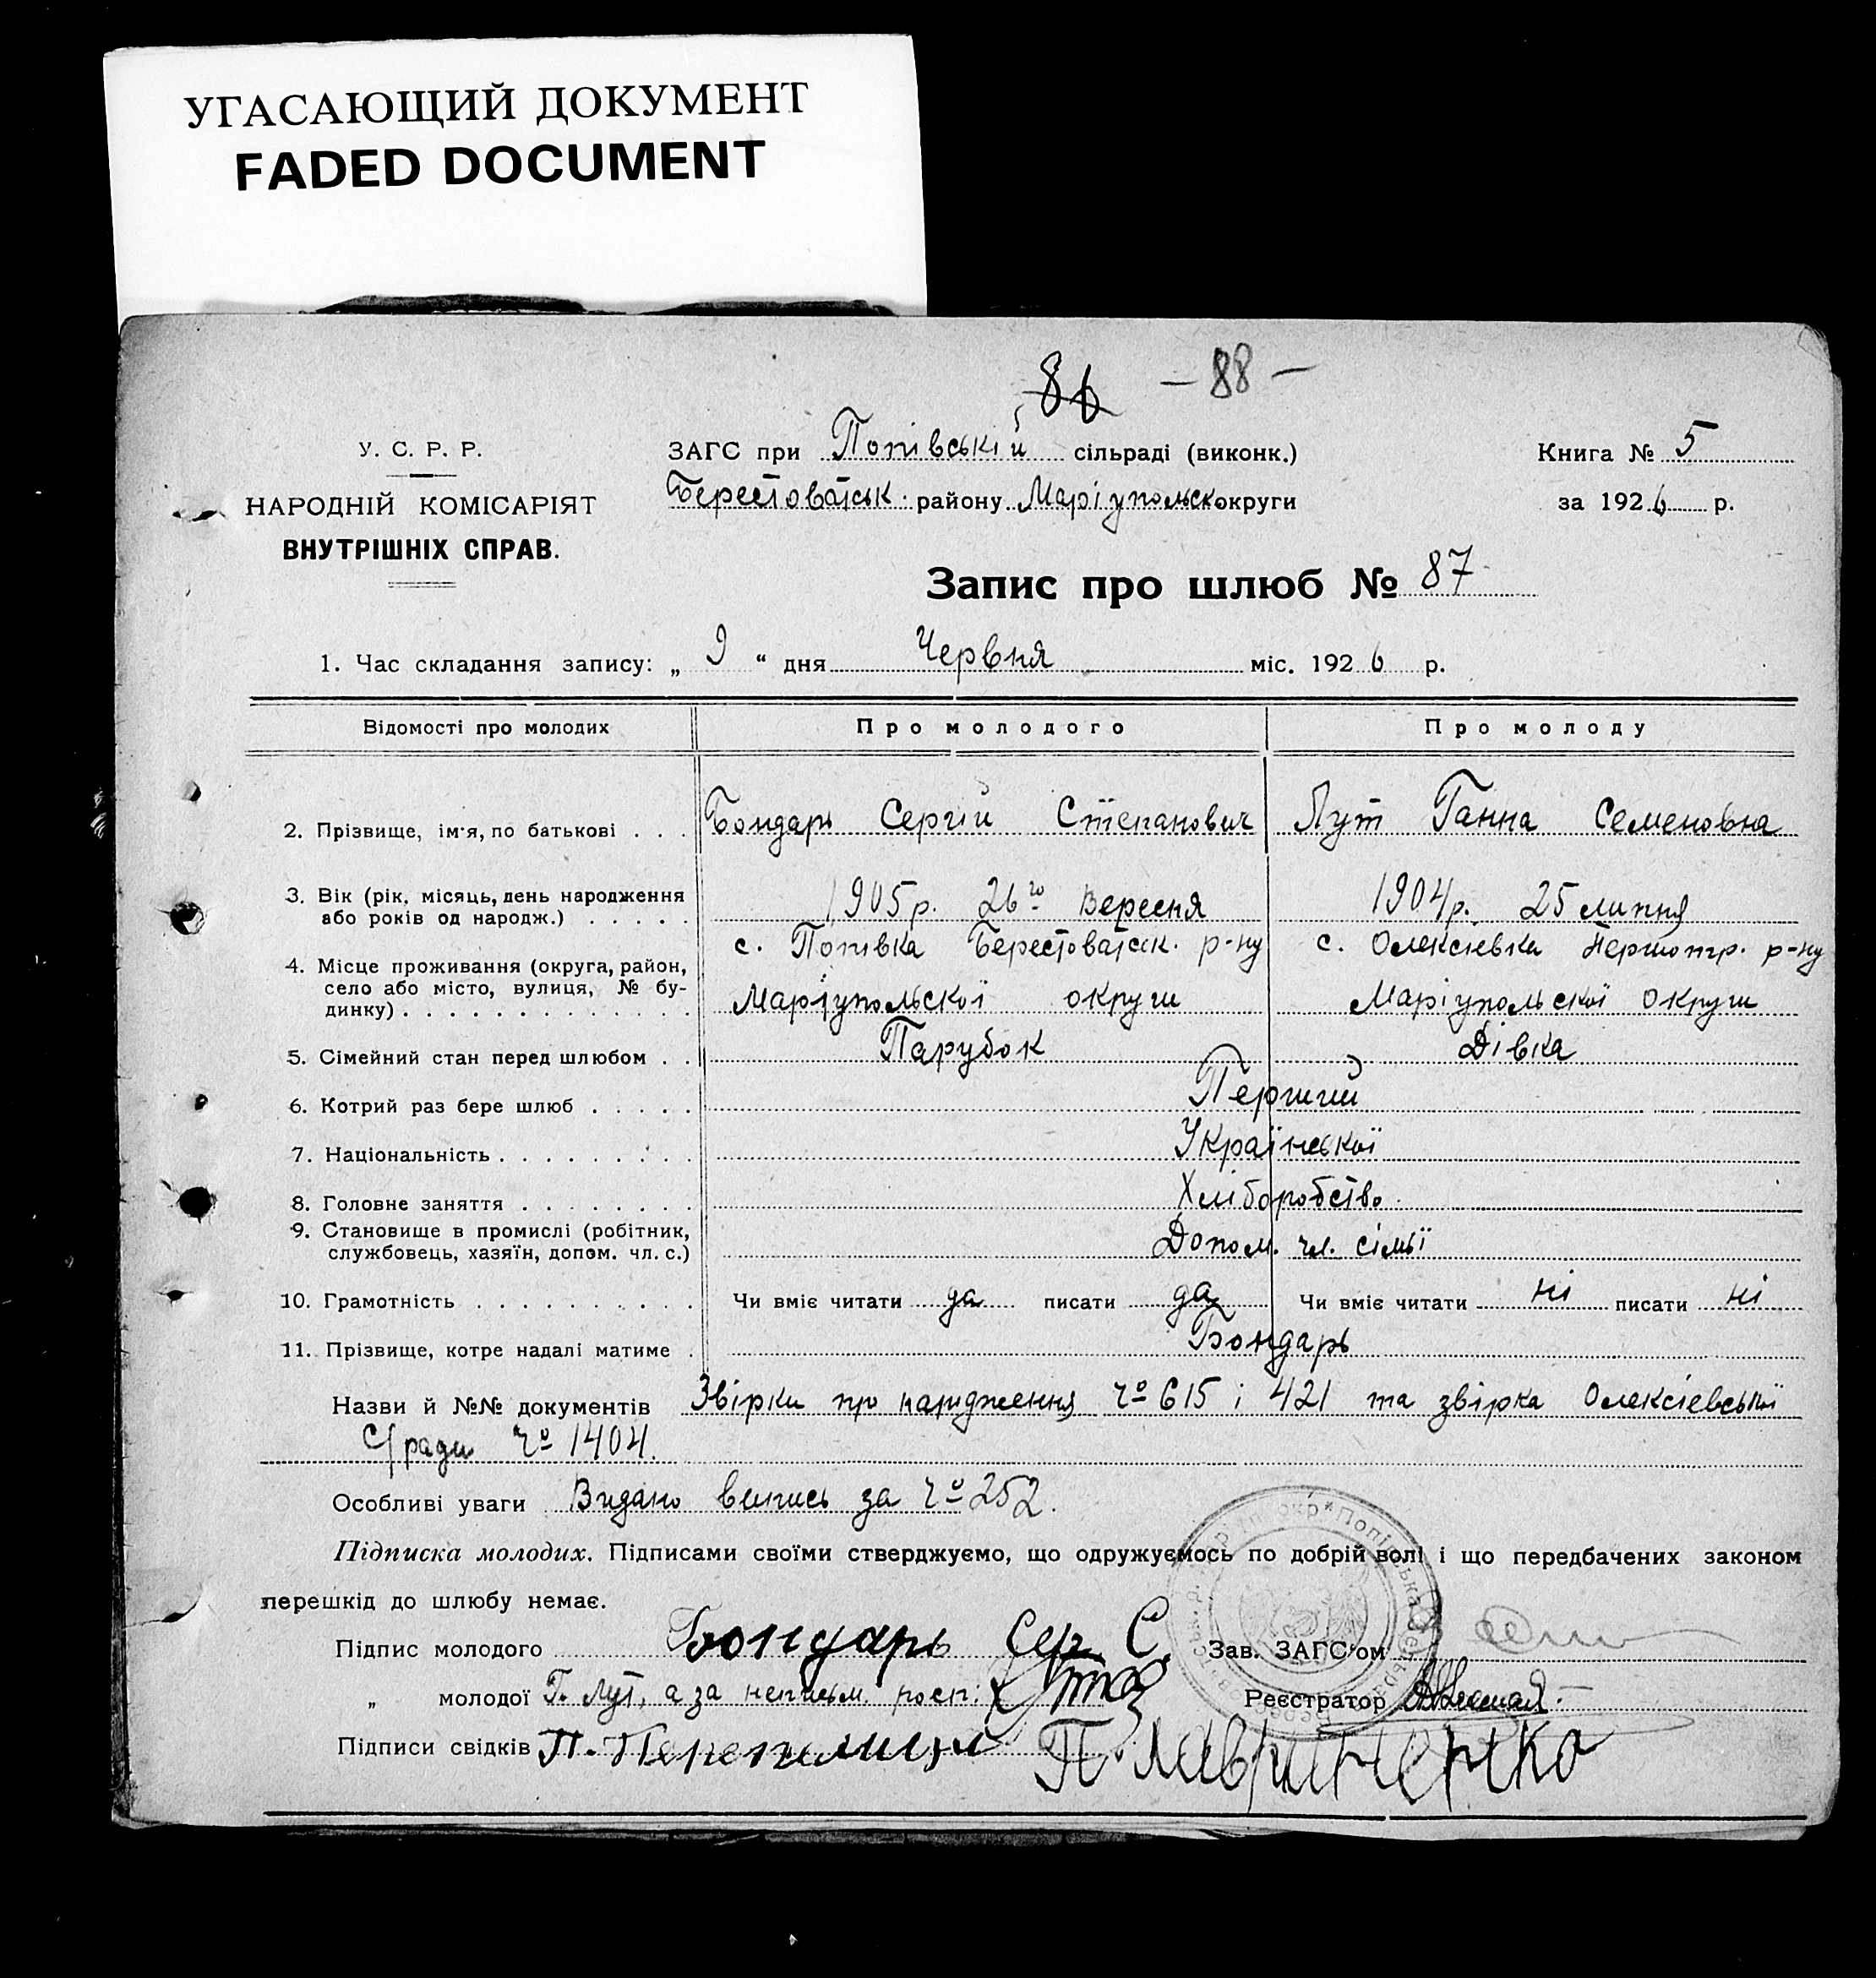 УГАСАЮЩИЙ ДОКУМЕНТ
FADED DOCUMENT
86 — 88 —
У. С. Р. Р.
НАРОДНІЙ КОМІСАРІЯТ
ВНУТРІШНІХ СПРАВ.
ЗАГС при Попівській сільраді (виконк.)
Берестоватськ. району Маріупольск округи
Книга № 5
за 1926 р.
Запис про шлюб № 87
1. Час складання запису: „ 9 “ дня Червня міс. 1926 р.
Відомості про молодих Про молодого Про молоду
2. Прізвище, ім'я, по батькові . . . Бондарь Сергій Степанович Лут Ганна Семеновна
3. Вік (рік, місяць, день народження
або років од народж.) . . . . . 1905 р. 26го Вересня 1904 р. 25 липня
4. Місце проживання (округа, район, с. Попівка Берестоватск. р-ну с. Олексієвка Першопр. р-ну
село або місто, вулиця, № бу-
динку) . . . . . . . . . . . . . Маріупольскої округи Маріупольскої округи
5. Сімейний стан перед шлюбом . . Парубок Дівка
6. Котрий раз бере шлюб . . . . . Перший
7. Національність . . . . . . . . . Українскої
8. Головне заняття . . . . . . . . Хліборобство
9. Становище в промислі (робітник,
службовець, хазяїн, допом. чл. с.) Допом. чл. сімьї
10. Грамотність . . . . . . . . . . Чи вміє читати да писати да Чи вміє читати ні писати ні
11. Прізвище, котре надалі матиме . Бондарь
Назви й №№ документів Звірки про народження Чо 615 і 421 та звірка Олексієвської
С/ради Чо 1404.
Особливі уваги Видано випись за Чо 252.
Підписка молодих. Підписами своїми стверджуємо, що одружуємось по добрій волі і що передбачених законом
перешкід до шлюбу немає.
Підпис молодого Бондарь Сер. С. Зав. ЗАГС'ом
„ молодої Г. Лут, а за неписьм. росп: Реєстратор
Підписи свідків П. Перепилиця П. Лавриненко